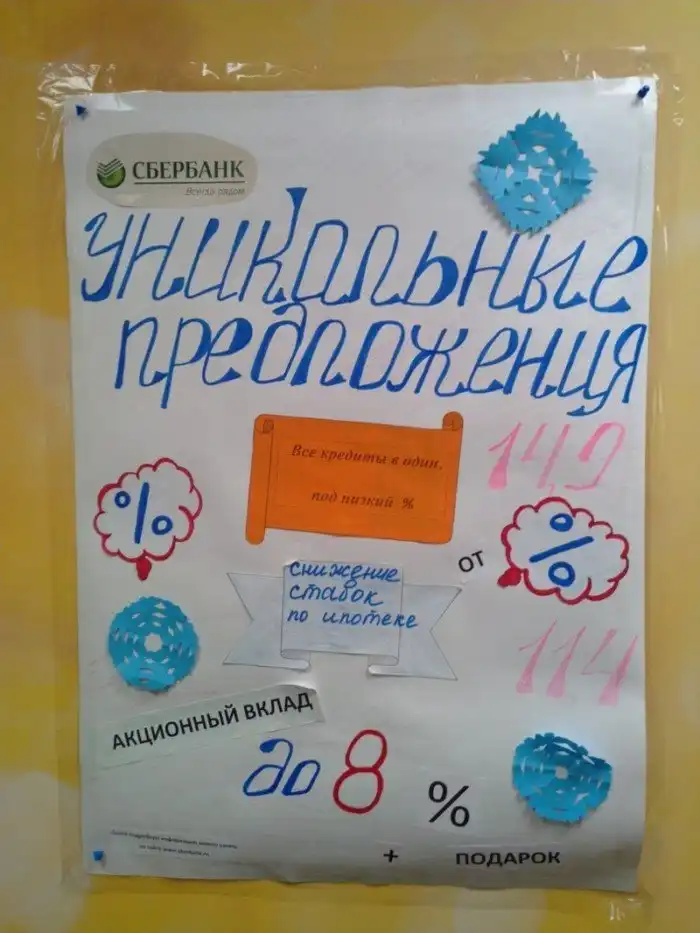 СБЕРБАНК
Всегда рядом
уникальные
предложения
Все кредиты в один,
под низкий %
149
%
от %
снижение
ставок
по ипотеке
114
АКЦИОННЫЙ ВКЛАД
до 8 %
+ ПОДАРОК